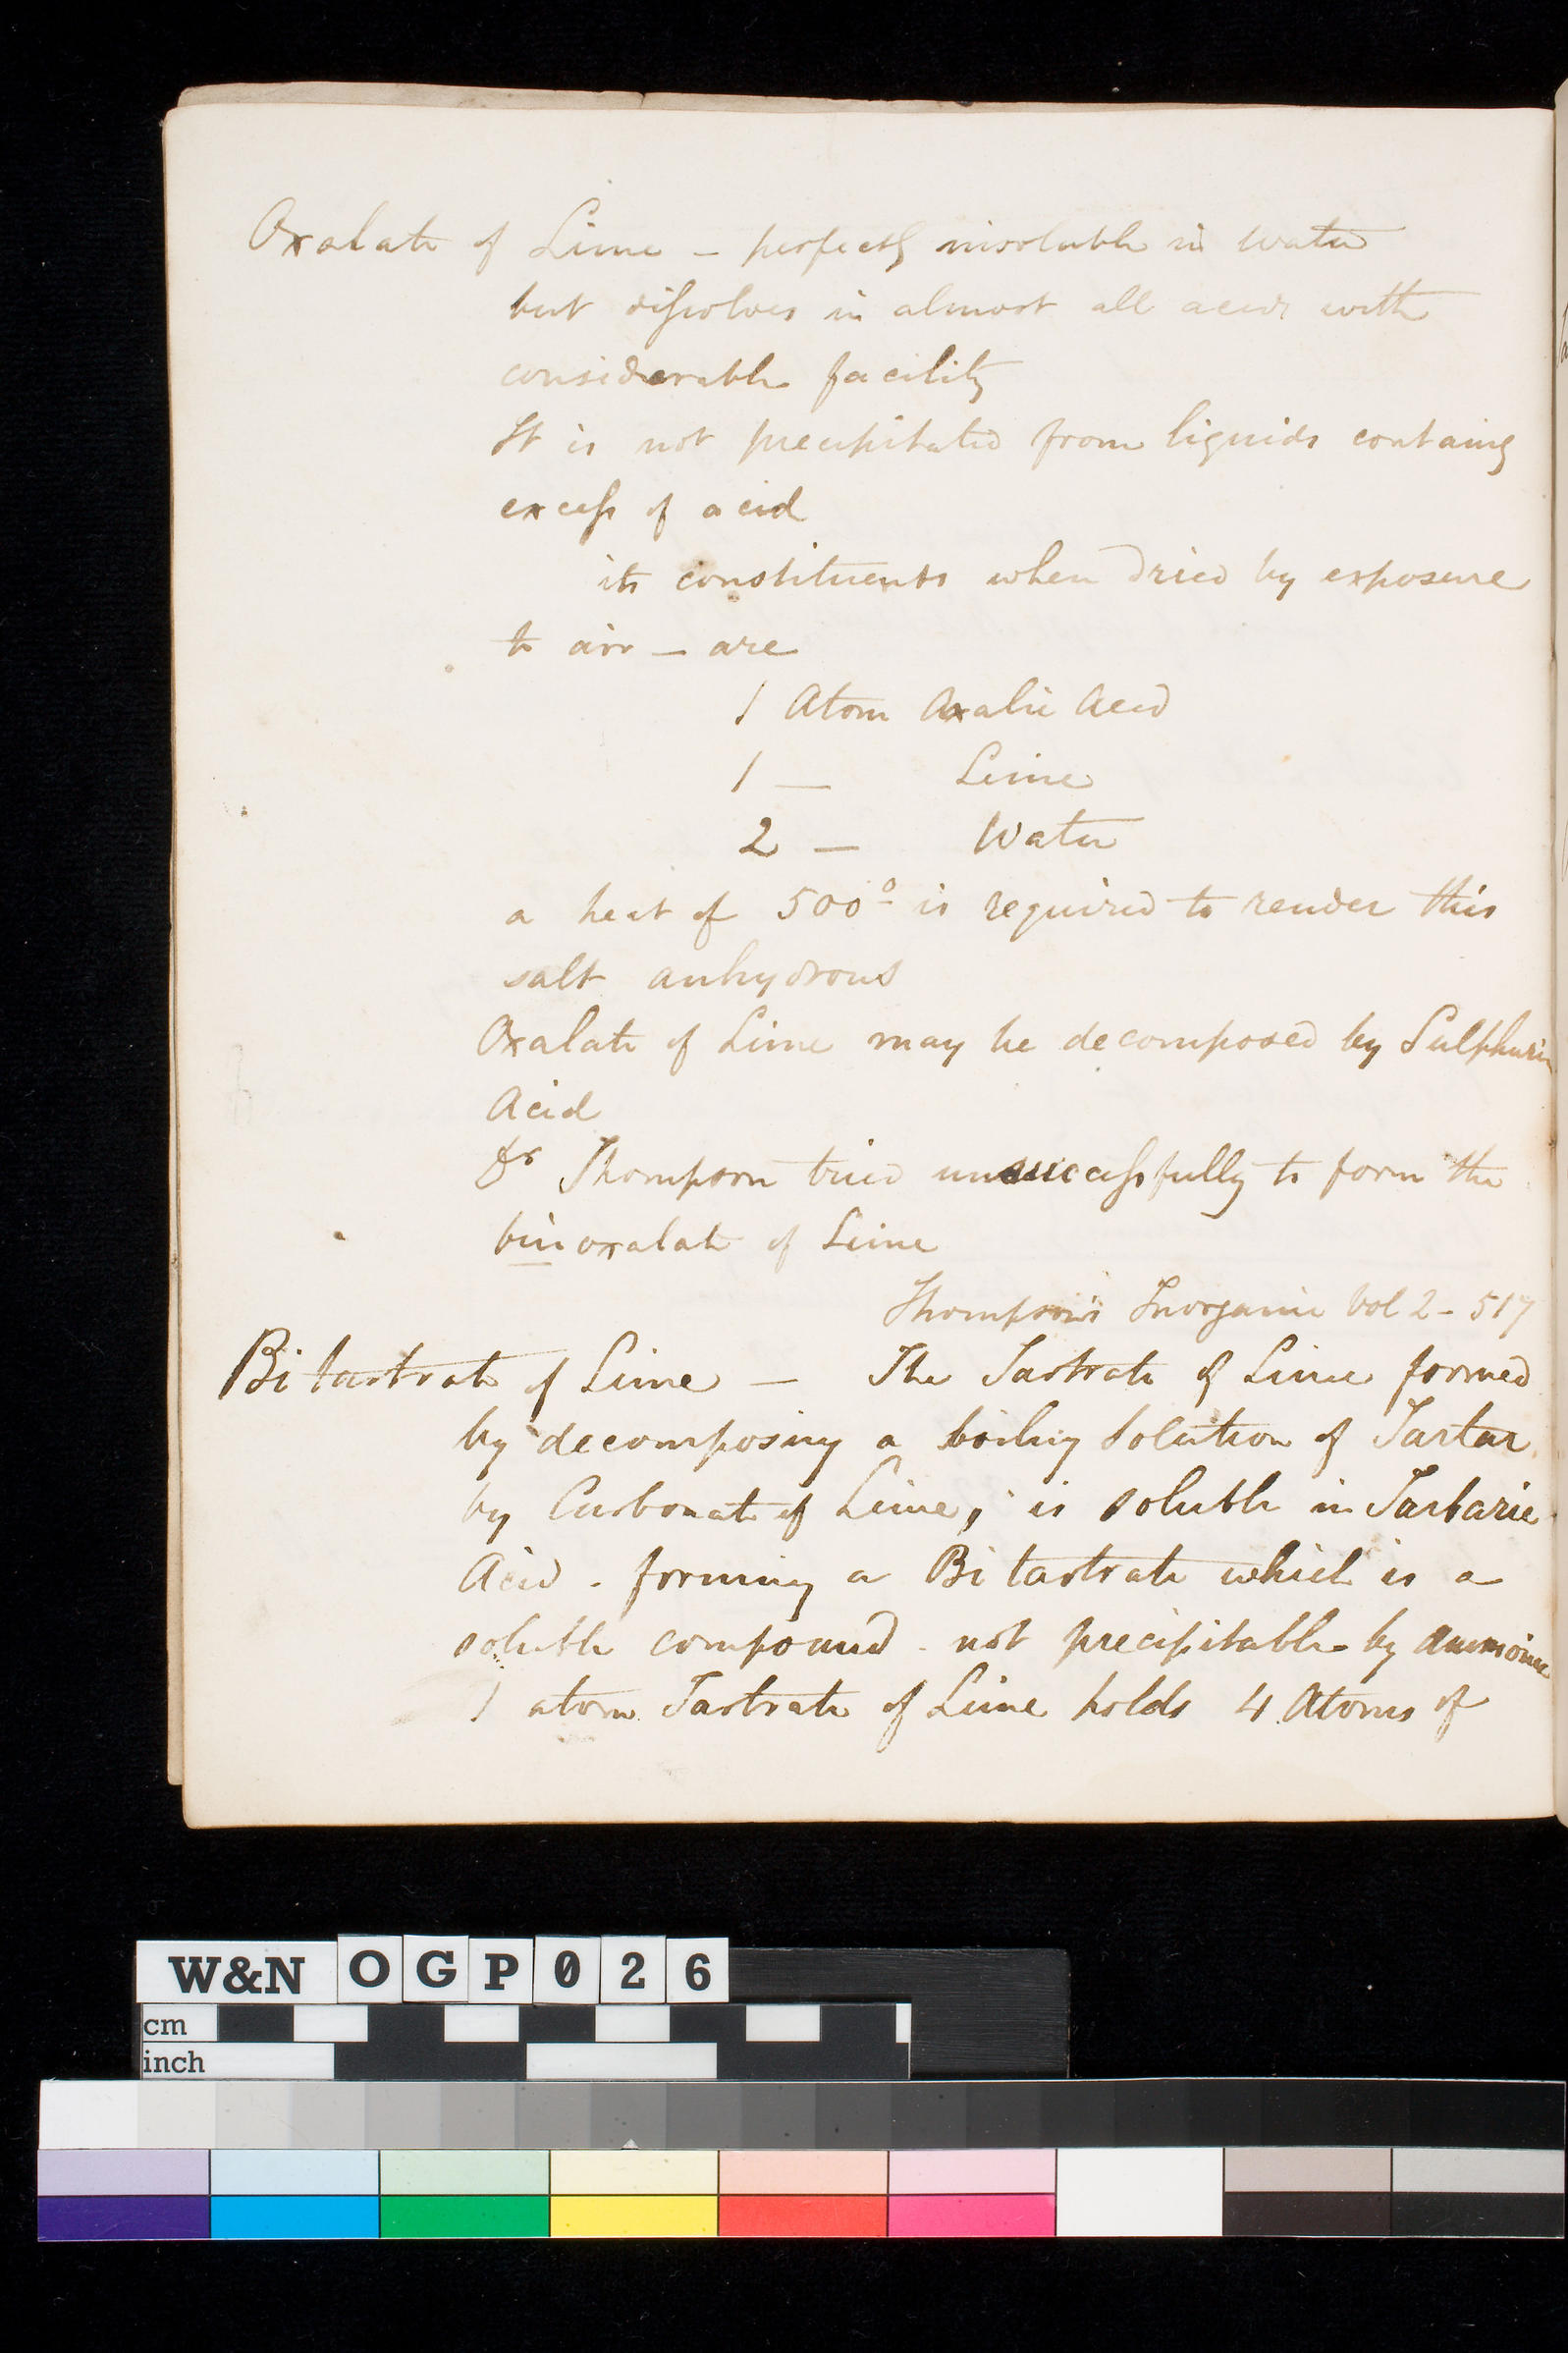 Oxalate of Lime – perfectly insoluble in water
but dissolves in almost all acids with
considerable facility
It is not precipitated from liquids containg
excess of acid
its constituents when dried by exposure
to air – are
1 Atom Oxalic Acid
1 — Lime
2 — Water
a heat of 500° is required to render this
salt anhydrous
Oxalate of Lime may be decomposed by Sulphuric
Acid
Dr Thompson tried unsuccessfully to form the
binoxalate of Lime
Thompson's Inorganic Vol 2 – 517
Bi tartrate of Lime — The Tartrate of Lime formed
by decomposing a boiling Solution of Tartar
by Carbonate of Lime, is soluble in Tartaric
Acid - forming a Bi tartrate which is a
soluble compound - not precipitable by ammonia
1 atom Tartrate of Lime holds 4 Atoms of
W&N OGP026
cm
inch